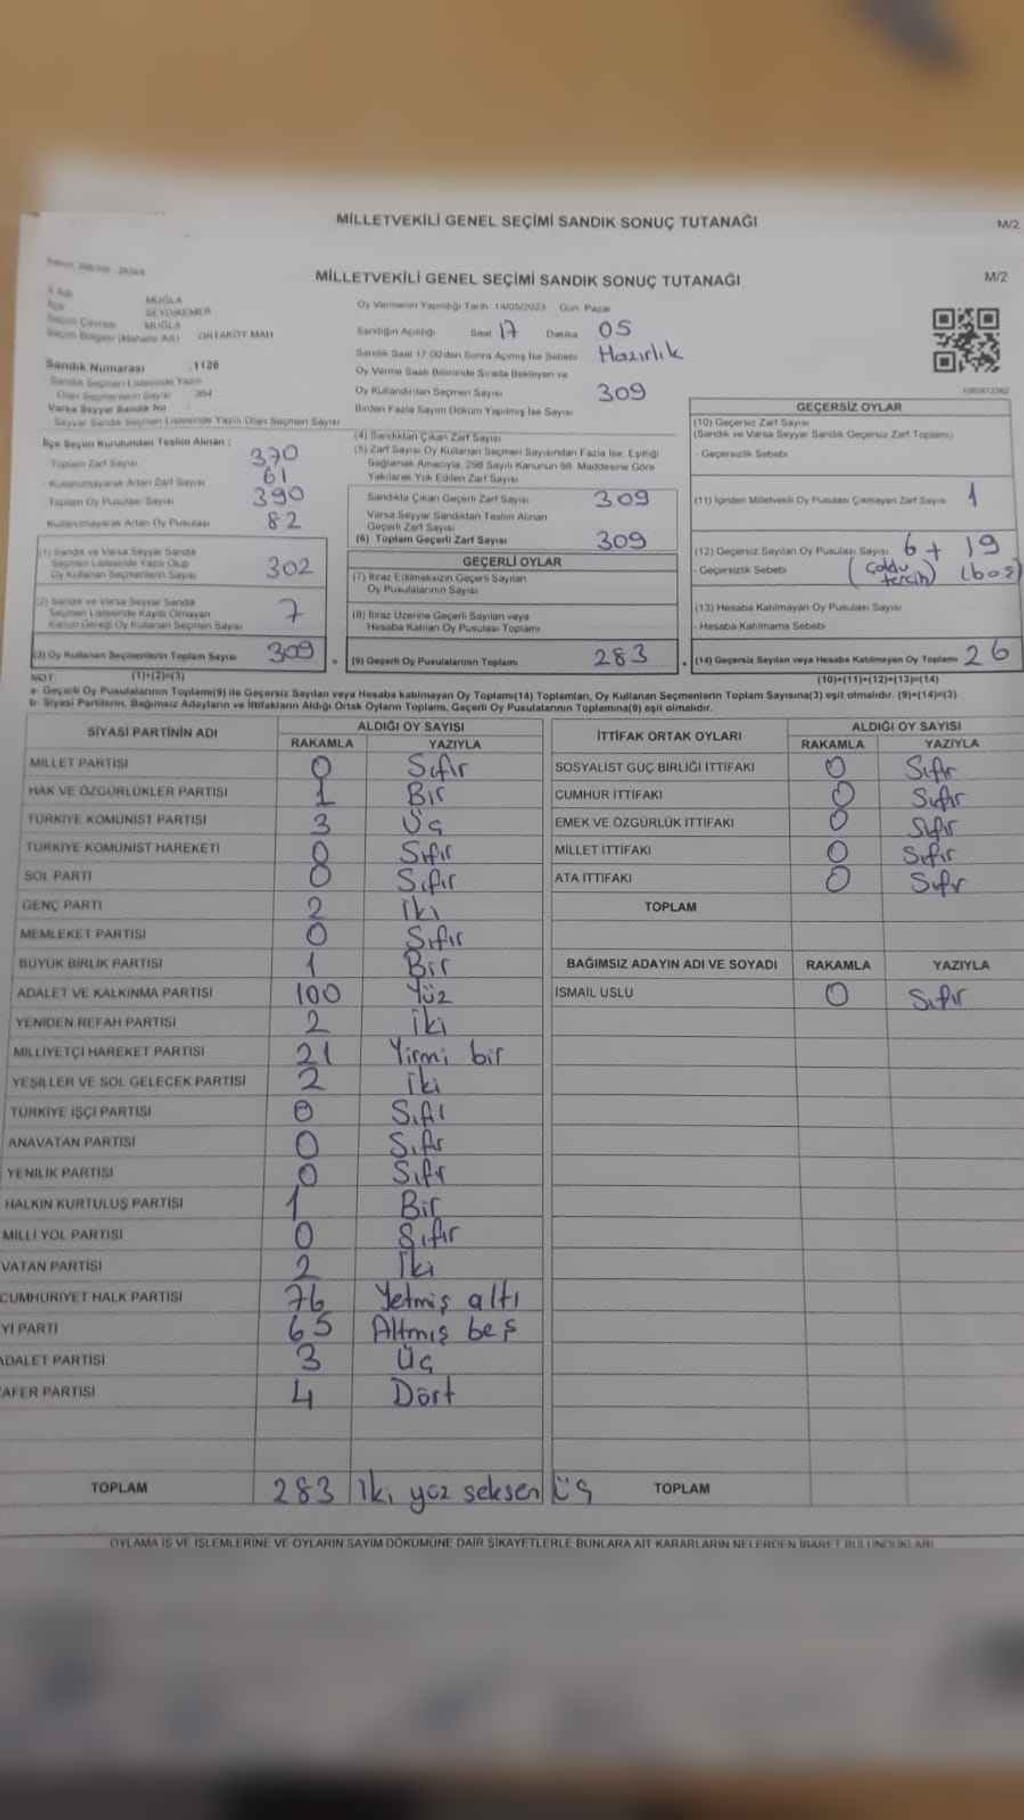 MİLLETVEKİLİ GENEL SEÇİMİ SANDIK SONUÇ TUTANAĞI M/2
MİLLETVEKİLİ GENEL SEÇİMİ SANDIK SONUÇ TUTANAĞI M/2
MUĞLA
SEYDİKEMER
MUĞLA
Seçim Bölgesi (Mahalle Adı) ORTAKÖY MAH
Sandık Numarası 1126
Sandık Seçmen Listesinde Yazılı
Olan Seçmenlerin Sayısı
Varsa Seyyar Sandık No
Seyyar Sandık Seçmen Listesinde Yazılı Olan Seçmen Sayısı
İlçe Seçim Kurulundan Teslim Alınan :
Toplam Zarf Sayısı 370
Kullanılmayarak Artan Zarf Sayısı 61
Toplam Oy Pusulası Sayısı 390
Kullanılmayarak Artan Oy Pusulası 82
(1) Sandık ve Varsa Seyyar Sandık
Seçmen Listesinde Yazılı Olup
Oy Kullanan Seçmenlerin Sayısı 302
(2) Sandık ve Varsa Seyyar Sandık
Seçmen Listesinde Kayıtlı Olmayan
Kanun Gereği Oy Kullanan Seçmen Sayısı 7
(3) Oy Kullanan Seçmenlerin Toplam Sayısı 309
(1)+(2)=(3)
Oy Vermenin Yapıldığı Tarih 14/05/2023 Gün Pazar
Sandığın Açıldığı Saat 17 Dakika 05
Sandık Saat 17:00'dan Sonra Açılmış İse Sebebi Hazırlık
Oy Verme Saati Bitiminde Sırada Bekleyen ve
Oy Kullandırılan Seçmen Sayısı 309
Birden Fazla Sayım Döküm Yapılmış İse Sayısı
(4) Sandıktan Çıkan Zarf Sayısı
(5) Zarf Sayısı Oy Kullanan Seçmen Sayısından Fazla İse, Eşitliği
Sağlamak Amacıyla, 298 Sayılı Kanunun 98. Maddesine Göre
Yakılarak Yok Edilen Zarf Sayısı
Sandıkta Çıkan Geçerli Zarf Sayısı 309
Varsa Seyyar Sandıktan Teslim Alınan
Geçerli Zarf Sayısı
(6) Toplam Geçerli Zarf Sayısı 309
GEÇERLİ OYLAR
(7) İtiraz Edilmeksizin Geçerli Sayılan
Oy Pusulalarının Sayısı
(8) İtiraz Üzerine Geçerli Sayılan veya
Hesaba Katılan Oy Pusulası Toplamı
(9) Geçerli Oy Pusulalarının Toplamı 283
GEÇERSİZ OYLAR
(10) Geçersiz Zarf Sayısı
(Sandık ve Varsa Seyyar Sandık Geçersiz Zarf Toplamı)
- Geçersizlik Sebebi
(11) İçinden Milletvekili Oy Pusulası Çıkmayan Zarf Sayısı 1
(12) Geçersiz Sayılan Oy Pusulası Sayısı 6 + 19
- Geçersizlik Sebebi (Çoklu tercih) (boş)
(13) Hesaba Katılmayan Oy Pusulası Sayısı
- Hesaba Katılmama Sebebi
(14) Geçersiz Sayılan veya Hesaba Katılmayan Oy Toplamı 26
(10)+(11)+(12)+(13)=(14)
NOT
a- Geçerli Oy Pusulalarının Toplamı(9) ile Geçersiz Sayılan veya Hesaba katılmayan Oy Toplamı(14) Toplamları, Oy Kullanan Seçmenlerin Toplam Sayısına(3) eşit olmalıdır. (9)+(14)=(3)
b- Siyasi Partilerin, Bağımsız Adayların ve İttifakların Aldığı Ortak Oyların Toplamı, Geçerli Oy Pusulalarının Toplamına(9) eşit olmalıdır.
SİYASİ PARTİNİN ADI ALDIĞI OY SAYISI
RAKAMLA YAZIYLA
MİLLET PARTİSİ 0 Sıfır
HAK VE ÖZGÜRLÜKLER PARTİSİ 1 Bir
TÜRKİYE KOMÜNİST PARTİSİ 3 Üç
TÜRKİYE KOMÜNİST HAREKETİ 0 Sıfır
SOL PARTİ 0 Sıfır
GENÇ PARTİ 2 İki
MEMLEKET PARTİSİ 0 Sıfır
BÜYÜK BİRLİK PARTİSİ 1 Bir
ADALET VE KALKINMA PARTİSİ 100 Yüz
YENİDEN REFAH PARTİSİ 2 İki
MİLLİYETÇİ HAREKET PARTİSİ 21 Yirmi bir
YEŞİLLER VE SOL GELECEK PARTİSİ 2 İki
TÜRKİYE İŞÇİ PARTİSİ 0 Sıfı
ANAVATAN PARTİSİ 0 Sıfır
YENİLİK PARTİSİ 0 Sıfır
HALKIN KURTULUŞ PARTİSİ 1 Bir
MİLLİ YOL PARTİSİ 0 Sıfır
VATAN PARTİSİ 2 İki
CUMHURİYET HALK PARTİSİ 76 Yetmiş altı
Yİ PARTİ 65 Altmış beş
ADALET PARTİSİ 3 Üç
AFER PARTİSİ 4 Dört
TOPLAM 283 İki yüz seksen üç
İTTİFAK ORTAK OYLARI ALDIĞI OY SAYISI
RAKAMLA YAZIYLA
SOSYALİST GÜÇ BİRLİĞİ İTTİFAKI 0 Sıfır
CUMHUR İTTİFAKI 0 Sıfır
EMEK VE ÖZGÜRLÜK İTTİFAKI 0 Sıfır
MİLLET İTTİFAKI 0 Sıfır
ATA İTTİFAKI 0 Sıfır
TOPLAM
BAĞIMSIZ ADAYIN ADI VE SOYADI RAKAMLA YAZIYLA
İSMAİL USLU 0 Sıfır
TOPLAM
OYLAMA İŞ VE İŞLEMLERİNE VE OYLARIN SAYIM DÖKÜMÜNE DAİR ŞİKAYETLERLE BUNLARA AİT KARARLARIN NELERDEN İBARET BULUNDUKLARI